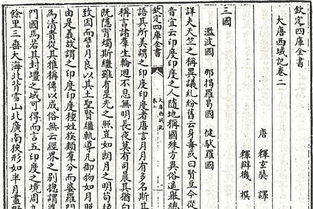 欽定四庫全書
大唐西域記卷二
唐 釋玄奘 譯
釋辯機 撰
三國
濫波國 那揭羅曷國 健馱羅國
詳夫天竺之稱異議糾紛舊云身毒或曰賢豆今從
音宜云印度印度之人隨地稱國殊方異俗遙舉總
欽定四庫全書 大唐西域記 卷二
語其所美謂之印度印度者唐言月月有多名斯其
稱言諸羣生輪迴不息無明長夜莫有司晨其猶白
既隱宵燭斯繼雖有星光之照豈如朗月之明苟緣
致因而譬月良以其土聖賢繼軌導凡御物如月照
由是義故謂之印度印度種姓族類羣分而婆羅門
為清貴從其雅稱傳以成俗無云經界之別總謂婆
門國焉若其封疆之域可得而言五印度之境周九
餘里三垂大海北背雪山北廣南狹形如半月畫野